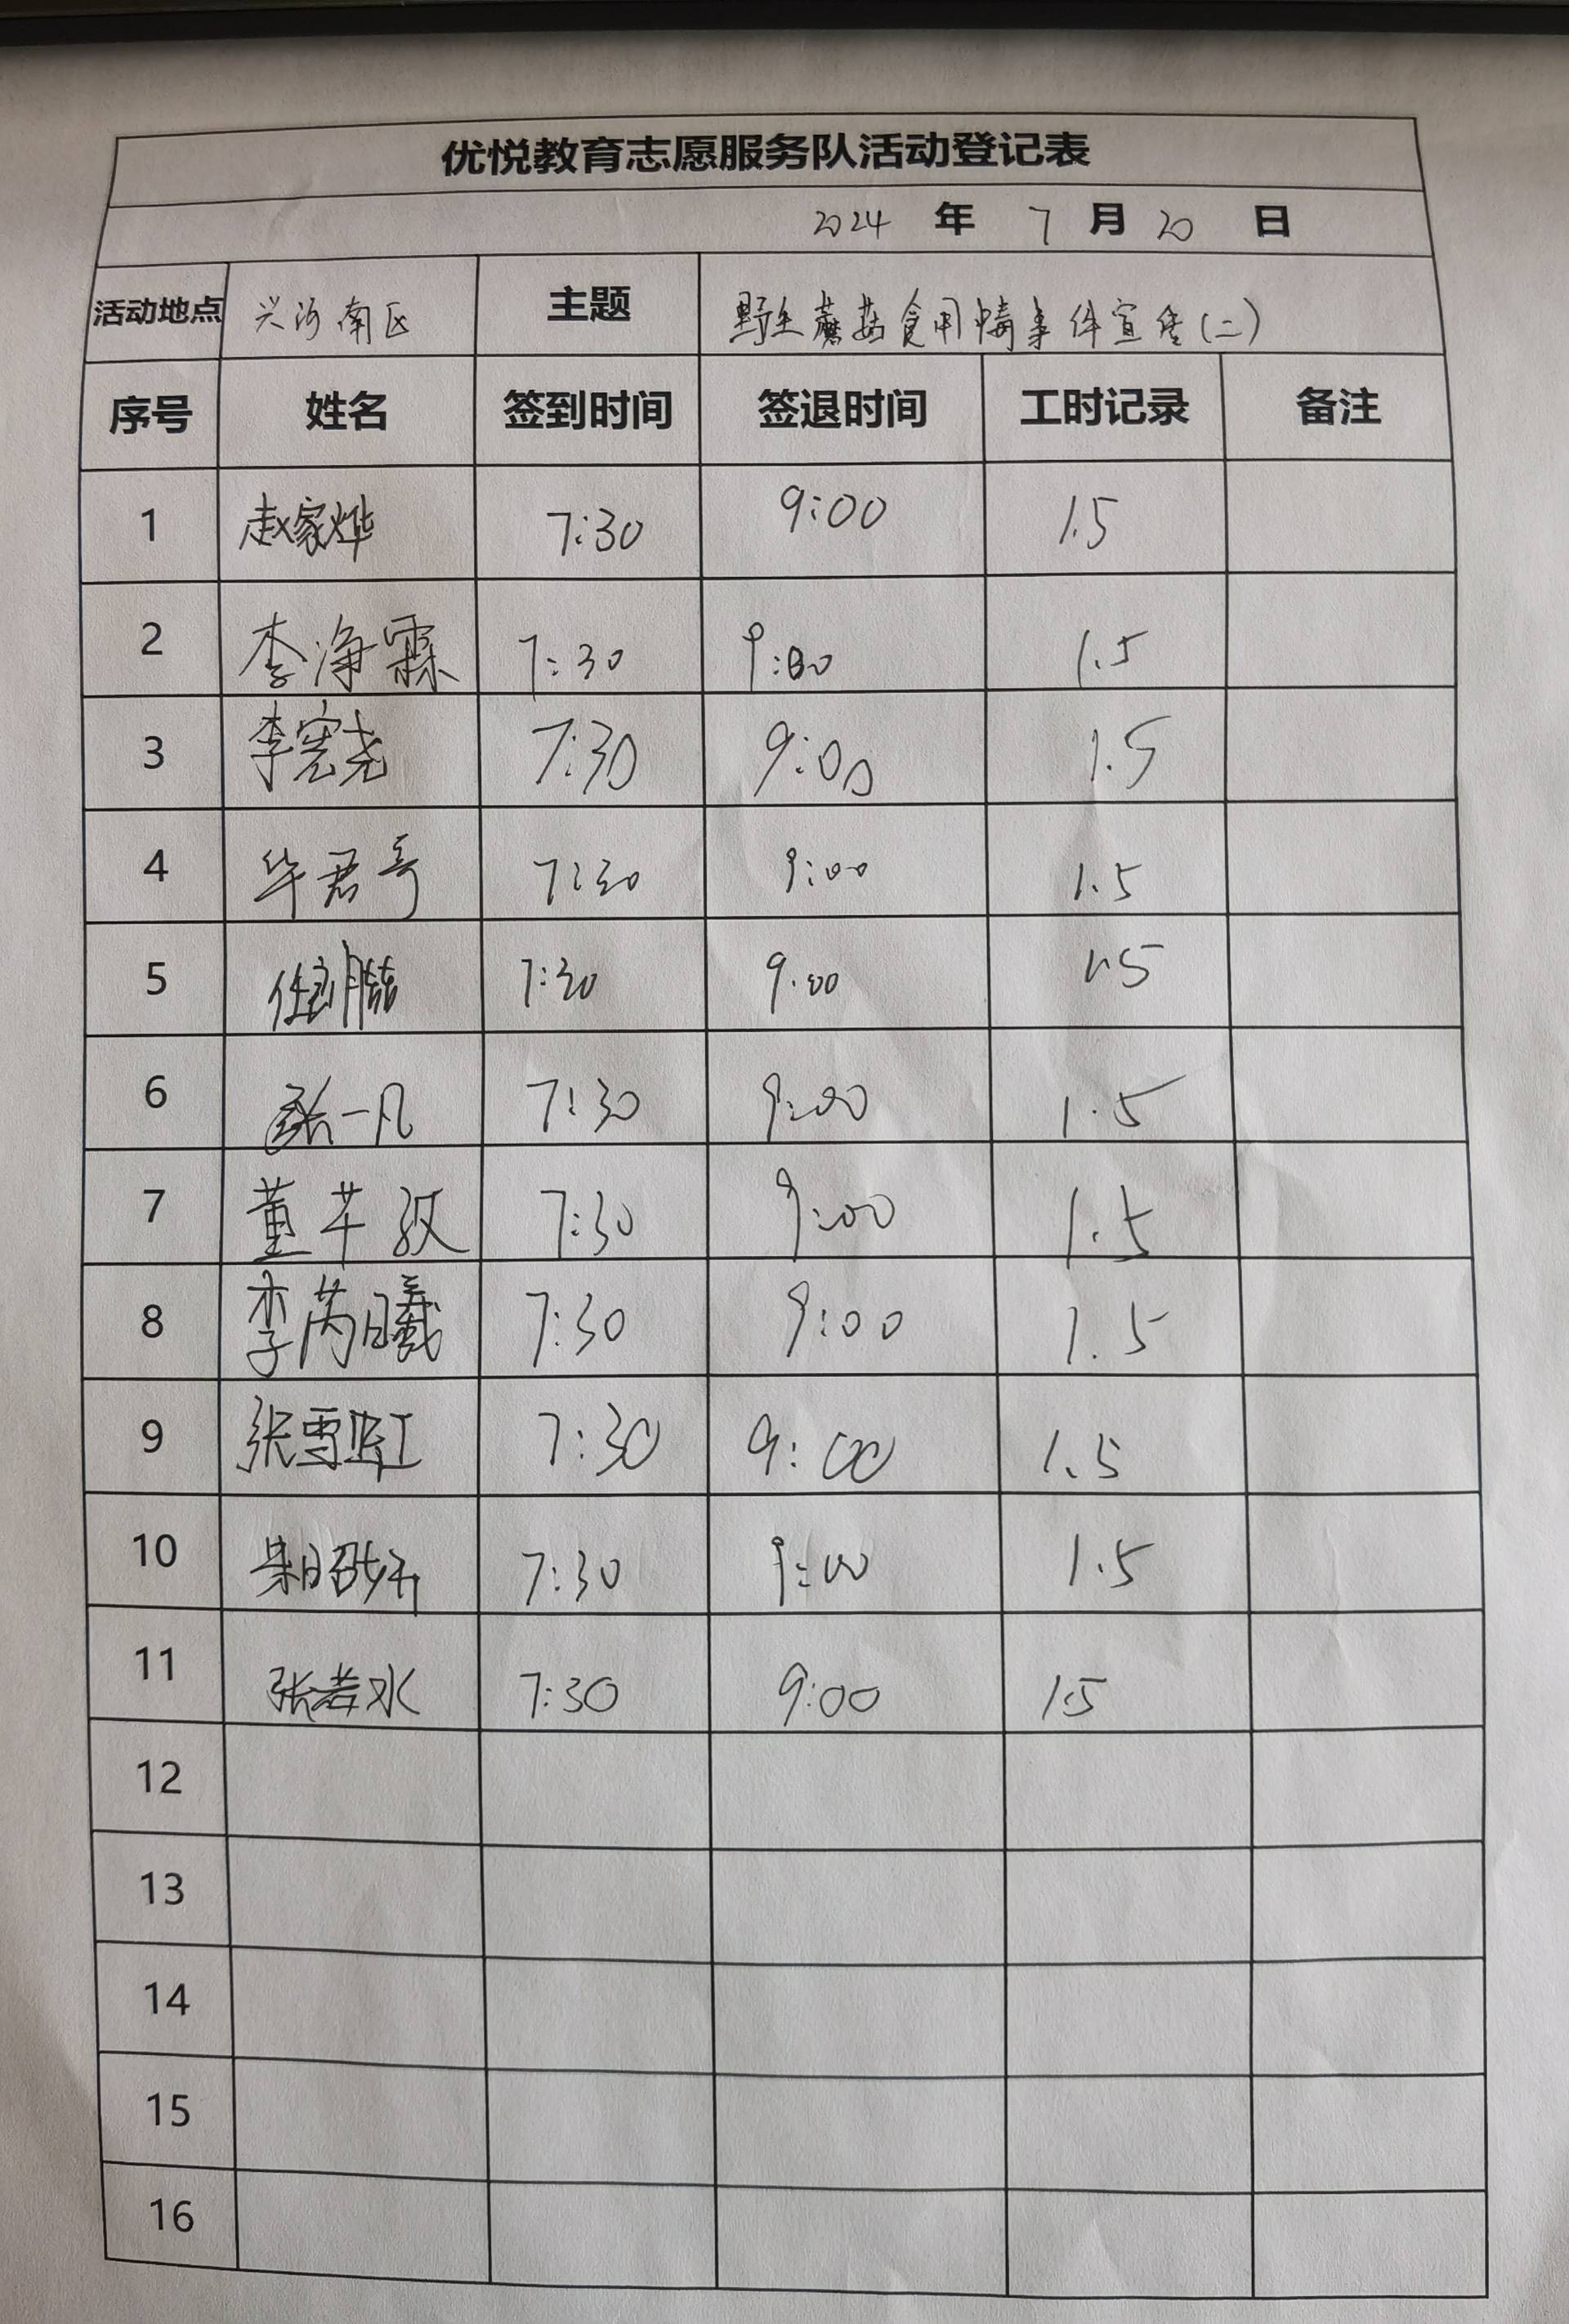 优悦教育志愿服务队活动登记表
2024 年 7 月 20 日
活动地点 兴河南区 主题 野生蘑菇食用中毒事件宣传(二)
序号 姓名 签到时间 签退时间 工时记录 备注
1 赵家烨 7:30 9:00 1.5
2 李净霖 7:30 9:00 1.5
3 李宪尧 7:30 9:00 1.5
4 华君奇 7:30 9:00 1.5
5 7:30 9:00 1.5
6 张一凡 7:30 9:00 1.5
7 董芊 7:30 9:00 1.5
8 李芮曦 7:30 9:00 1.5
9 张雪虹 7:30 9:00 1.5
10 7:30 9:00 1.5
11 张若水 7:30 9:00 1.5
12
13
14
15
16